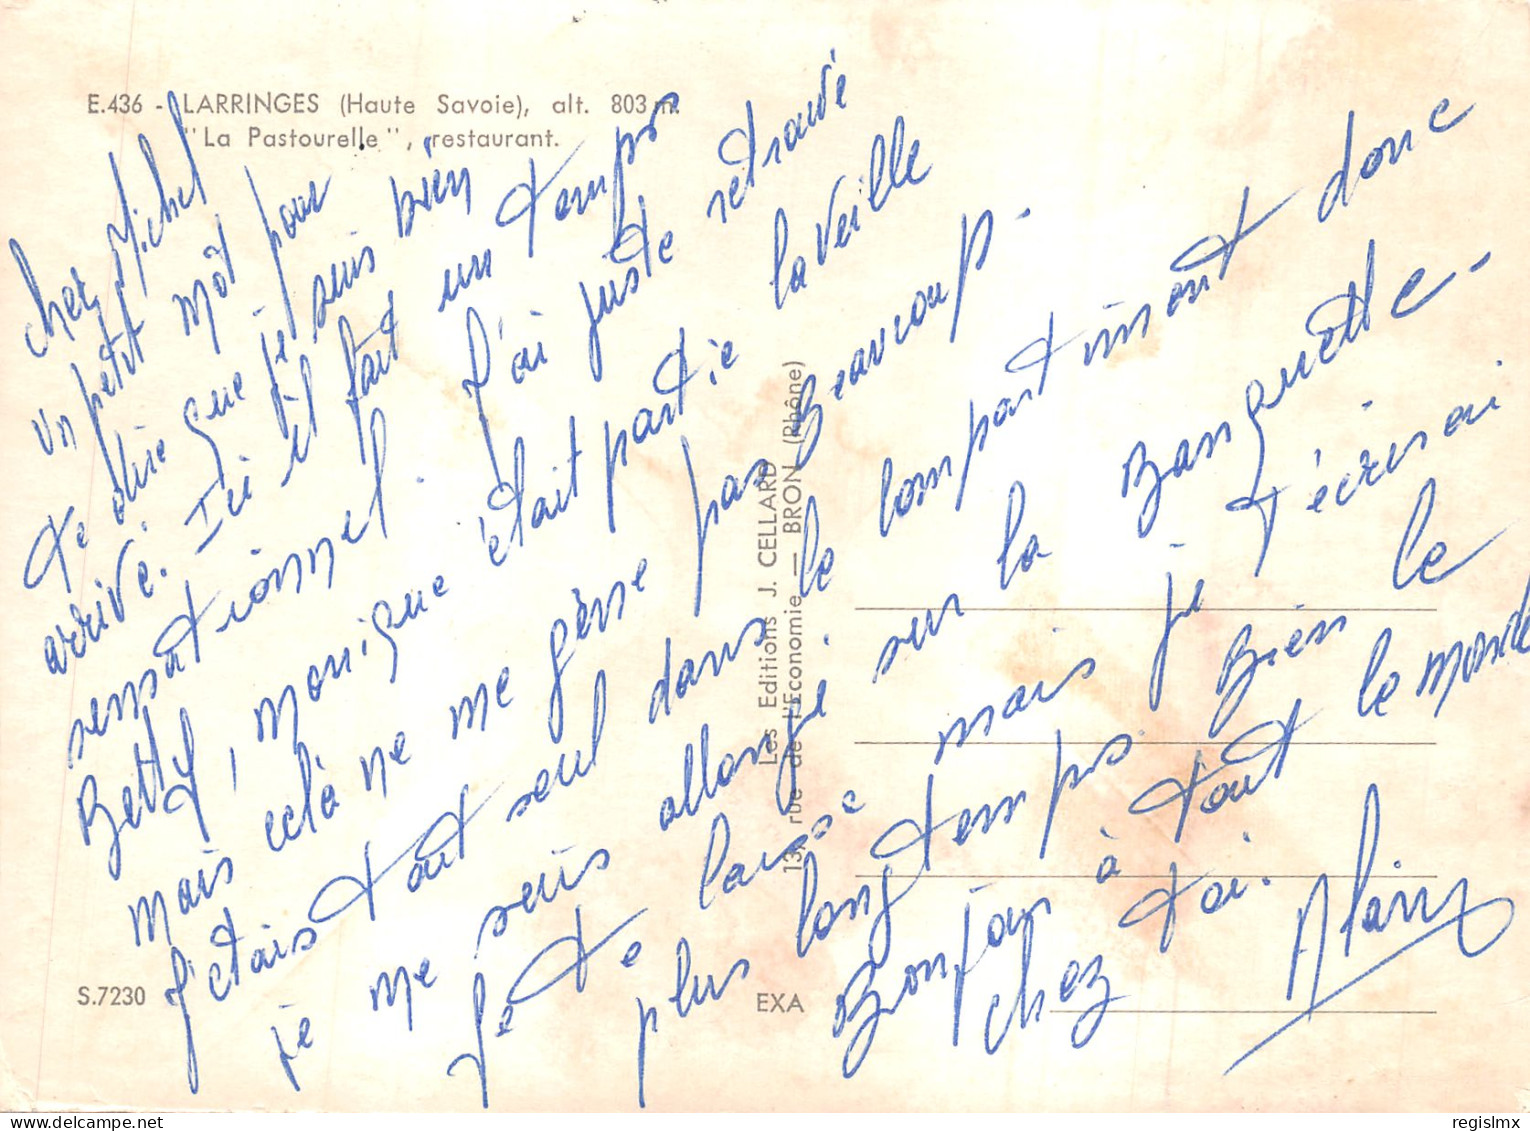 E.436 - LARRINGES (Haute Savoie), alt. 803 m.
"La Pastourelle", restaurant.
Cher Michel
Un petit môt pour
te dire que je suis bien
arrivé. Ici il fait un temps
sensationnel. J'ai juste retrouvé
Bettel, monique était partie la veille
mais celà ne me gène pas Beaucoup.
J'étais tout seul dans le compartiment donc
je me suis allongé sur la Banquette.
Je te laisse mais je t'écrirai
plus longtemps. Bien le
Bonjour à tout le monde
chez toi.
Alain
Les Editions J. CELLARD
13, rue de l'Economie — BRON (Rhône)
S.7230
EXA
regislmx